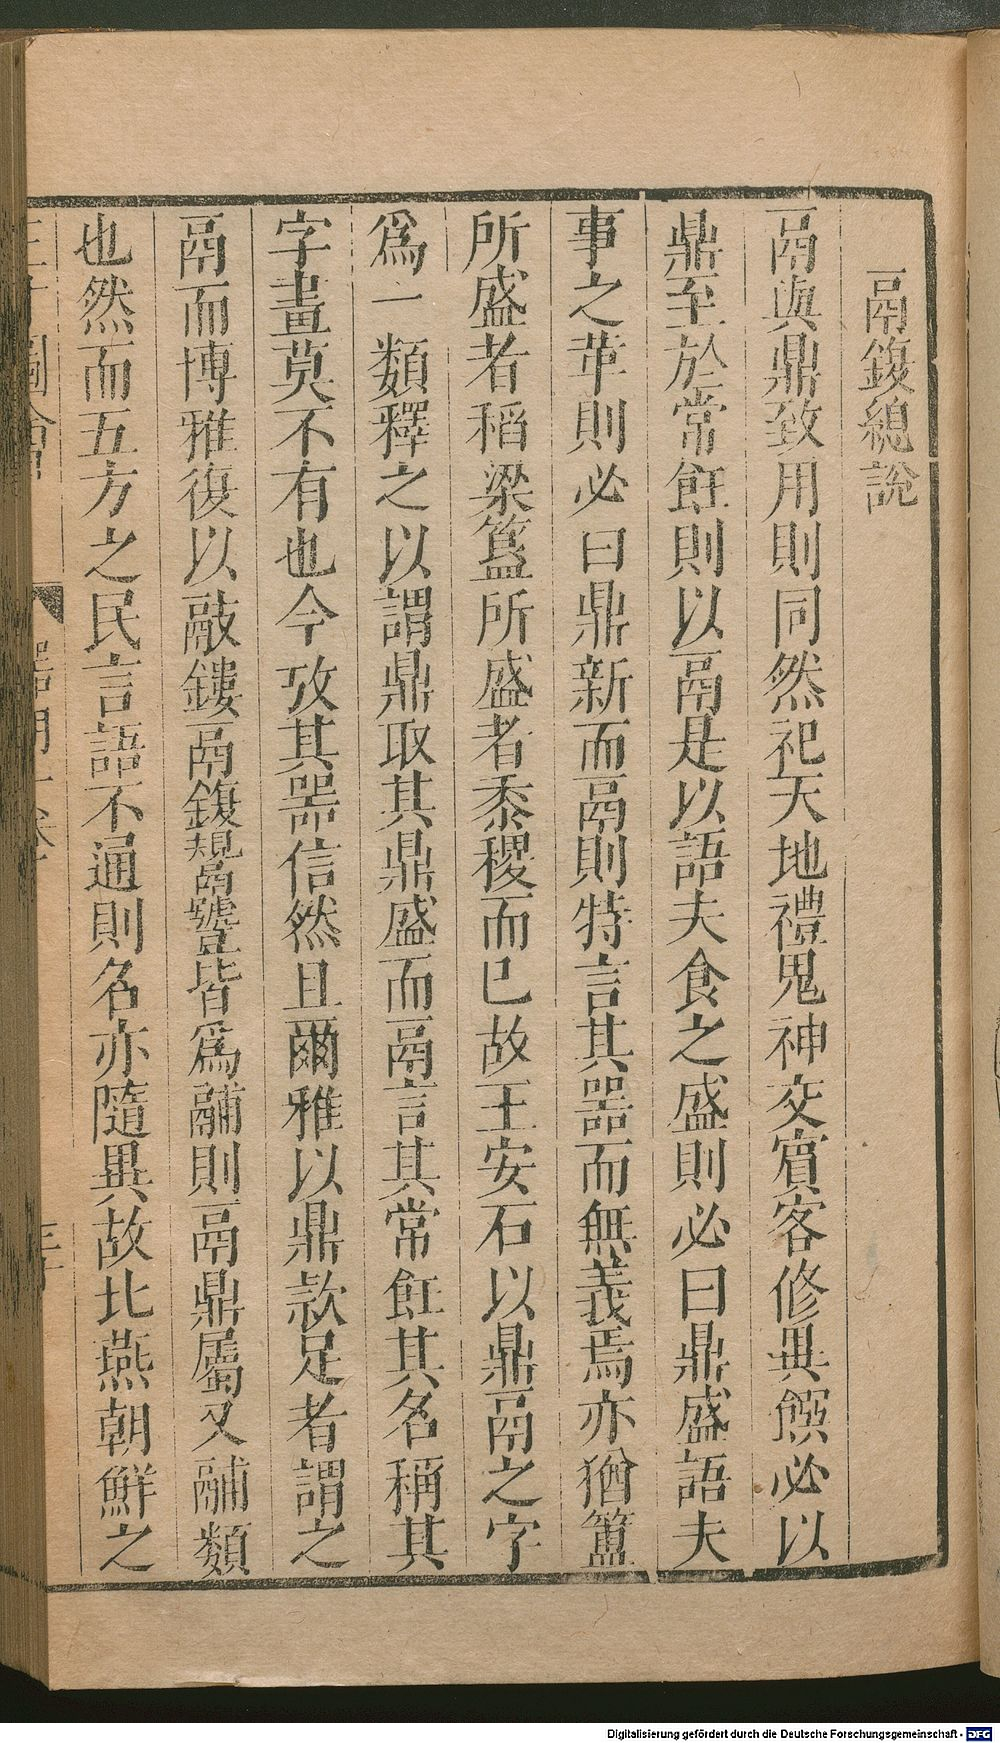 鬲鍑總說
鬲與鼎致用則同然祀天地禮鬼神交賓客修異饌必以
鼎至於常飪則以鬲是以語夫食之盛則必曰鼎盛語夫
事之革則必曰鼎新而鬲則特言其器而無義焉亦猶簠
所盛者稻梁簋所盛者黍稷而已故王安石以鼎鬲之字
爲一類釋之以謂鼎取其鼎盛而鬲言其常飪其名稱其
字畫莫不有也今攷其器信然且爾雅以鼎款足者謂之
鬲而博雅復以敲鏤鬲鍑鬹皆爲鬴則鬲鼎屬又鬴類
也然而五方之民言語不通則名亦隨異故北燕朝鮮之
圖會
Digitalisierung gefördert durch die Deutsche Forschungsgemeinschaft - DFG